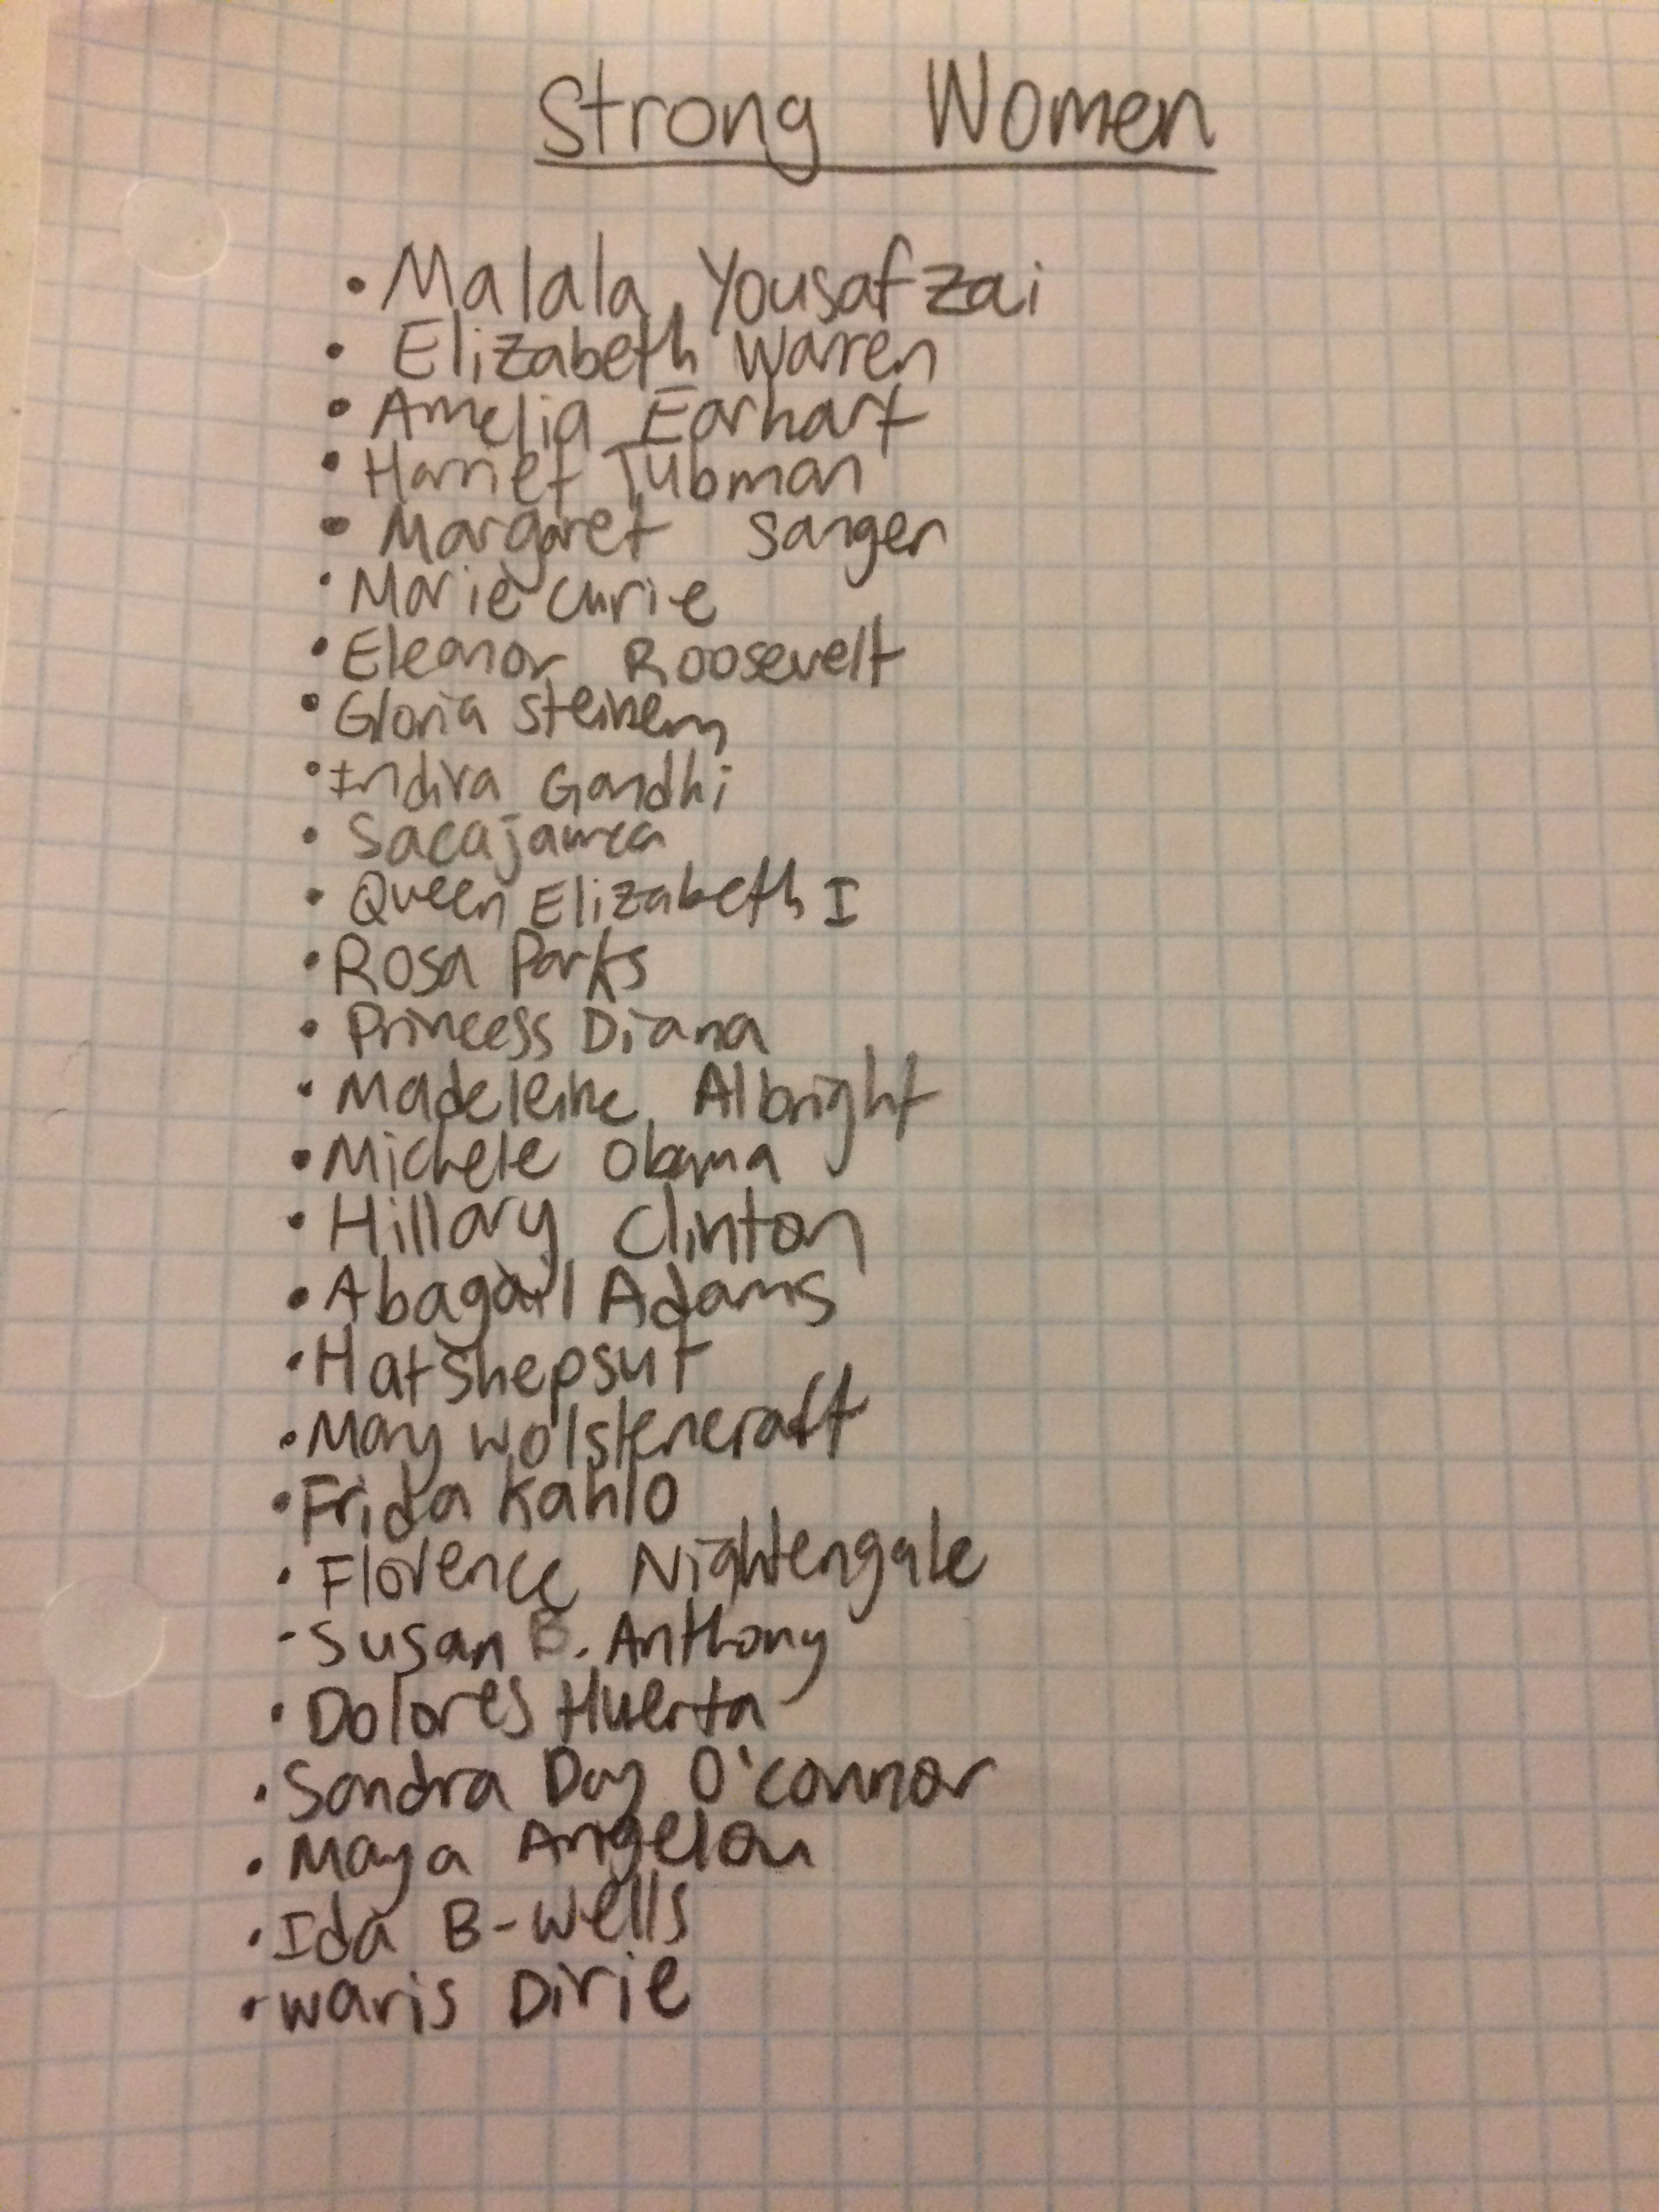 Strong Women
• Malala Yousafzai
• Elizabeth Warren
• Amelia Earhart
• Harriet Tubman
• Margaret Sanger
• Marie Curie
• Eleanor Roosevelt
• Gloria Steinem
• Indira Gandhi
• Sacajawea
• Queen Elizabeth I
• Rosa Parks
• Princess Diana
• Madeleine Albright
• Michele Obama
• Hillary Clinton
• Abagail Adams
• Hatshepsut
• Mary Wolstencraft
• Frida Kahlo
• Florence Nightengale
- Susan B. Anthony
• Dolores Huerta
• Sandra Day O'connor
• Maya Angelou
• Ida B-Wells
• Waris Dirie